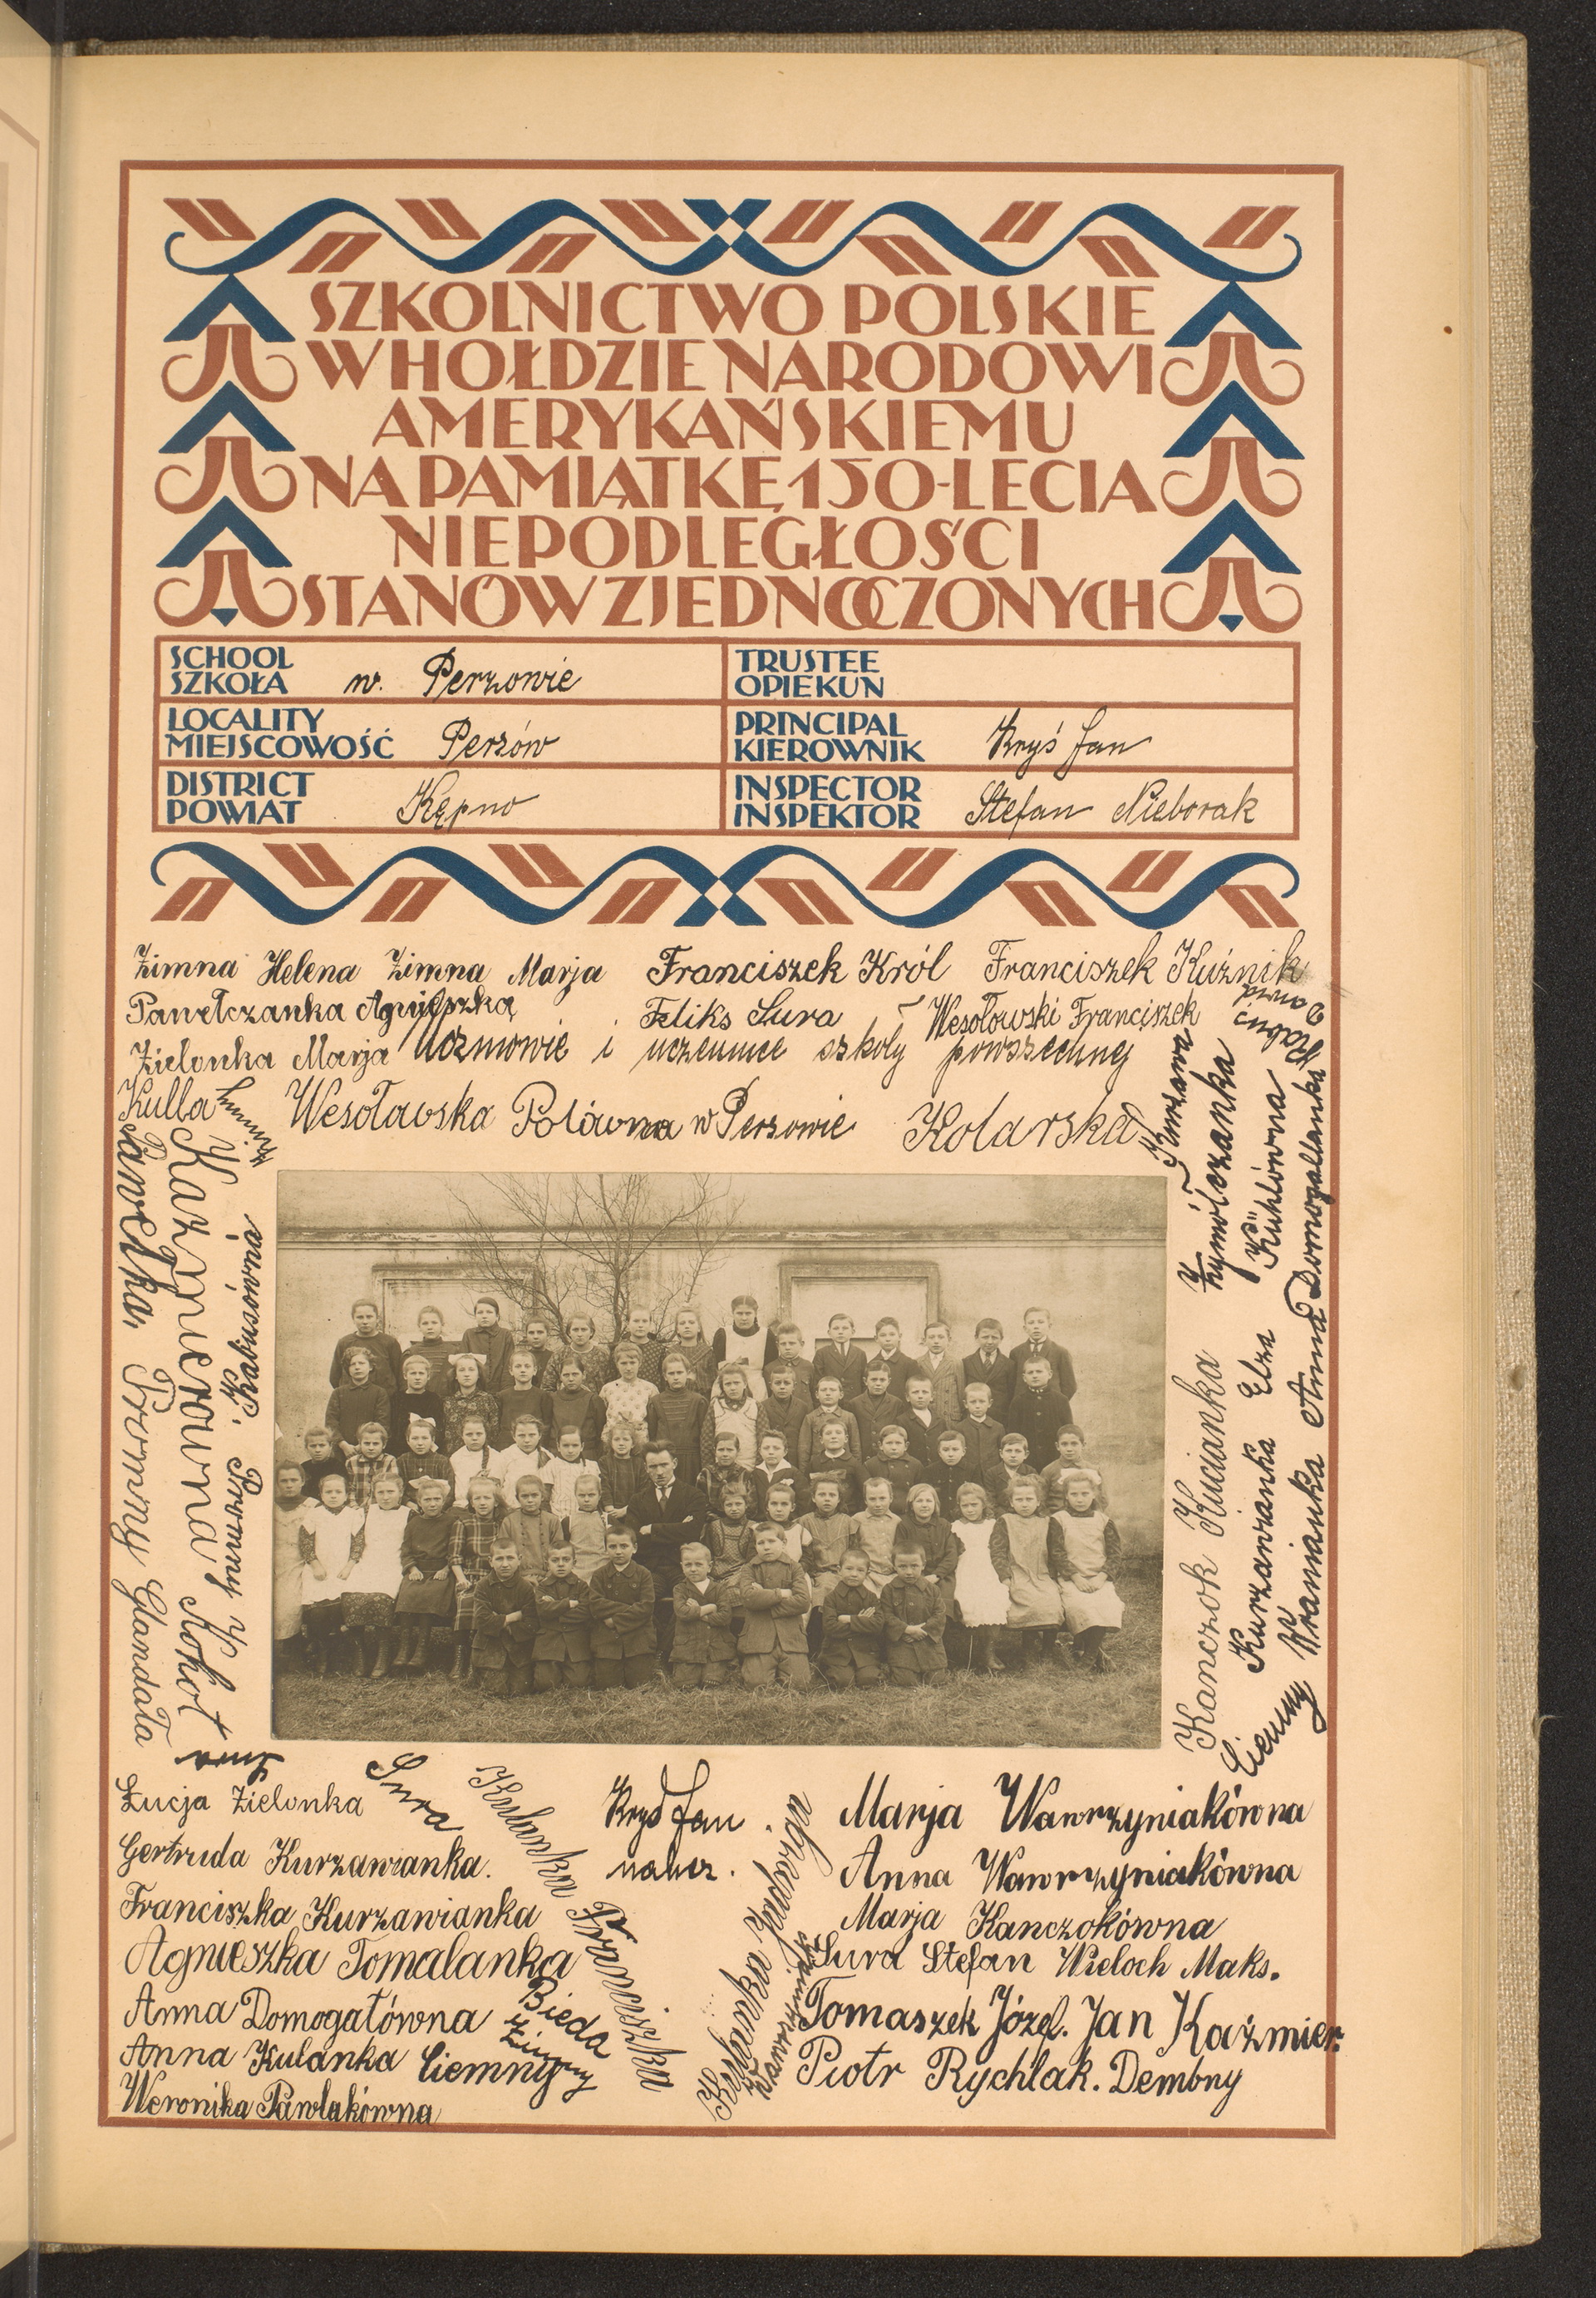 SZKOLNICTWO POLSKIE
W HOŁDZIE NARODOWI
AMERYKAŃSKIEMU
NA PAMIĄTKĘ 150-LECIA
NIEPODLEGŁOŚCI
STANÓW ZJEDNOCZONYCH
SCHOOL
SZKOŁA w. Perzowie
TRUSTEE
OPIEKUN
LOCALITY
MIEJSCOWOŚĆ Perzów
PRINCIPAL
KIEROWNIK Kryś Jan
DISTRICT
POWIAT Kępno
INSPECTOR
INSPEKTOR Stefan Nieborak
Zimna Helena Zimna Marja Franciszek Król Franciszek Kuźnik
Pawełczanka Agnieszka Feliks Sura Wesołowski Franciszek
Zielonka Marja Uczniowie i uczennice szkoły powszechnej
Kulla Wesołowska Polówna w Perzowie Kolarska
Pawełka. Prowny Glandała
Kazmierowna Kokot
Kabusówna
Kurzawa
Żymolczanka
Kühlówna Elza
Anna Domogallanka
Kanczok Kucianka
Kurzawianka
Ciemny
Sura
Łucja Zielonka
Sura
Kulanka Franciszka
Kryś Jan
naucz.
Kulanka Jadwiga
Gertruda Kurzawianka.
Franciszka Kurzawianka
Agnieszka Tomalanka
Anna Domogałówna
Bieda
Anna Kulanka Ciemny
Weronika Pawlakówna
Marja Wawrzyniakówna
Anna Wawrzyniakówna
Marja Kanczokówna
Sura Stefan Wieloch Maks.
Tomaszek Józef. Jan Kaźmier.
Piotr Rychlak. Dembny